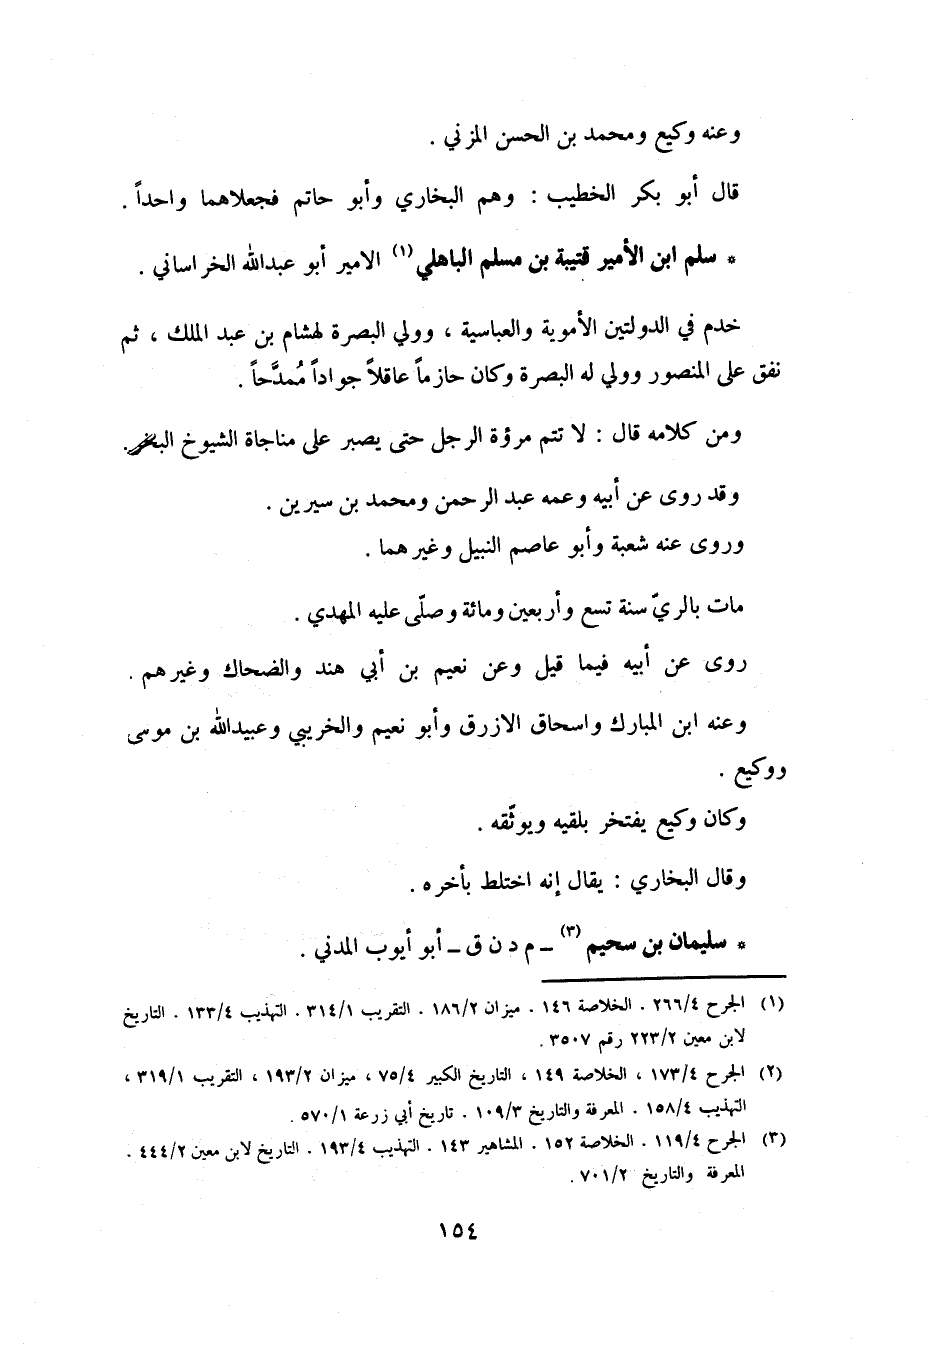 وعنه وكيع ومحمد بن الحسن المزني .
قال أبو بكر الخطيب : وهم البخاري وأبو حاتم فجعلاهما واحداً .
* سلم ابن الأمير قتيبة بن مسلم الباهلي (١) الامير أبو عبدالله الخراساني .
خدم في الدولتين الأموية والعباسية ، وولي البصرة لهشام بن عبد الملك ، ثم
نفق على المنصور وولي له البصرة وكان حازماً عاقلاً جواداً مُمدَّحاً .
ومن كلامه قال : لا تتم مرؤة الرجل حتى يصبر على مناجاة الشيوخ البخر .
وقد روى عن أبيه وعمه عبد الرحمن ومحمد بن سيرين .
وروى عنه شعبة وأبو عاصم النبيل وغيرهما .
مات بالريّ سنة تسع وأربعين ومائة وصلّى عليه المهدي .
روى عن أبيه فيما قيل وعن نعيم بن أبي هند والضحاك وغيرهم .
وعنه ابن المبارك واسحاق الازرق وأبو نعيم والخريبي وعبيدالله بن موسى
ووكيع .
وكان وكيع يفتخر بلقيه ويوثّقه .
وقال البخاري : يقال إنه اختلط بأخره .
* سليمان بن سحيم (٣) ــ م د ن ق ــ أبو أيوب المدني .
(١) الجرح ٢٦٦/٤ . الخلاصة ١٤٦ . ميزان ١٨٦/٢ . التقريب ٣١٤/١ . التهذيب ١٣٣/٤ . التاريخ
لابن معين ٢٢٣/٢ رقم ٣٥٠٧ .
(٢) الجرح ١٧٣/٤ ، الخلاصة ١٤٩ ، التاريخ الكبير ٧٥/٤ ، ميزان ١٩٣/٢ ، التقريب ٣١٩/١ ،
التهذيب ١٥٨/٤ . المعرفة والتاريخ ١٠٩/٣ . تاريخ أبي زرعة ٥٧٠/١ .
(٣) الجرح ١١٩/٤ . الخلاصة ١٥٢ . المشاهير ١٤٣ . التهذيب ١٩٣/٤ . التاريخ لابن معين ٤٤٤/٢ .
المعرفة والتاريخ ٧٠١/٢ .
١٥٤